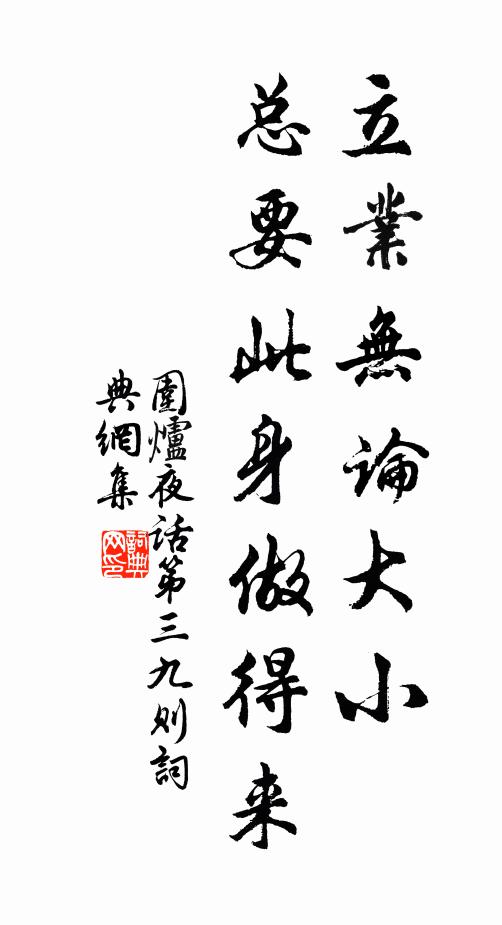 立業無論大小
总要此身做得来
圍爐夜话第三九则詞
典網集
詞典
网印